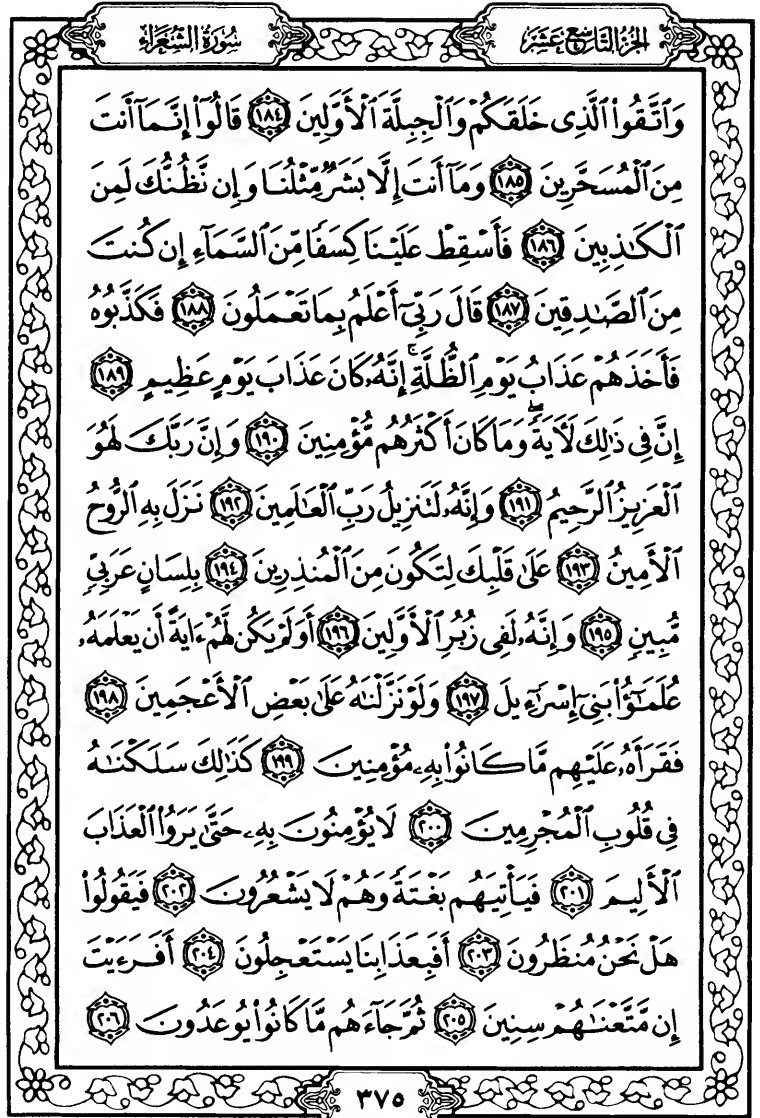 سُورَةُ الشُّعَرَاءِ
الجُزْءُ التَّاسِعُ عَشَرَ
وَٱتَّقُوا۟ ٱلَّذِى خَلَقَكُمْ وَٱلْجِبِلَّةَ ٱلْأَوَّلِينَ ١٨٤ قَالُوٓا۟ إِنَّمَآ أَنتَ
مِنَ ٱلْمُسَحَّرِينَ ١٨٥ وَمَآ أَنتَ إِلَّا بَشَرٌ مِّثْلُنَا وَإِن نَّظُنُّكَ لَمِنَ
ٱلْكَٰذِبِينَ ١٨٦ فَأَسْقِطْ عَلَيْنَا كِسَفًا مِّنَ ٱلسَّمَآءِ إِن كُنتَ
مِنَ ٱلصَّٰدِقِينَ ١٨٧ قَالَ رَبِّىٓ أَعْلَمُ بِمَا تَعْمَلُونَ ١٨٨ فَكَذَّبُوهُ
فَأَخَذَهُمْ عَذَابُ يَوْمِ ٱلظُّلَّةِ ۚ إِنَّهُۥ كَانَ عَذَابَ يَوْمٍ عَظِيمٍ ١٨٩
إِنَّ فِى ذَٰلِكَ لَءَايَةً ۖ وَمَا كَانَ أَكْثَرُهُم مُّؤْمِنِينَ ١٩٠ وَإِنَّ رَبَّكَ لَهُوَ
ٱلْعَزِيزُ ٱلرَّحِيمُ ١٩١ وَإِنَّهُۥ لَتَنزِيلُ رَبِّ ٱلْعَٰلَمِينَ ١٩٢ نَزَلَ بِهِ ٱلرُّوحُ
ٱلْأَمِينُ ١٩٣ عَلَىٰ قَلْبِكَ لِتَكُونَ مِنَ ٱلْمُنذِرِينَ ١٩٤ بِلِسَانٍ عَرَبِىٍّ
مُّبِينٍ ١٩٥ وَإِنَّهُۥ لَفِى زُبُرِ ٱلْأَوَّلِينَ ١٩٦ أَوَلَمْ يَكُن لَّهُمْ ءَايَةً أَن يَعْلَمَهُۥ
عُلَمَٰٓؤُا۟ بَنِىٓ إِسْرَٰٓءِيلَ ١٩٧ وَلَوْ نَزَّلْنَٰهُ عَلَىٰ بَعْضِ ٱلْأَعْجَمِينَ ١٩٨
فَقَرَأَهُۥ عَلَيْهِم مَّا كَانُوا۟ بِهِۦ مُؤْمِنِينَ ١٩٩ كَذَٰلِكَ سَلَكْنَٰهُ
فِى قُلُوبِ ٱلْمُجْرِمِينَ ٢٠٠ لَا يُؤْمِنُونَ بِهِۦ حَتَّىٰ يَرَوُا۟ ٱلْعَذَابَ
ٱلْأَلِيمَ ٢٠١ فَيَأْتِيَهُم بَغْتَةً وَهُمْ لَا يَشْعُرُونَ ٢٠٢ فَيَقُولُوا۟
هَلْ نَحْنُ مُنظَرُونَ ٢٠٣ أَفَبِعَذَابِنَا يَسْتَعْجِلُونَ ٢٠٤ أَفَرَءَيْتَ
إِن مَّتَّعْنَٰهُمْ سِنِينَ ٢٠٥ ثُمَّ جَآءَهُم مَّا كَانُوا۟ يُوعَدُونَ ٢٠٦
٣٧٥